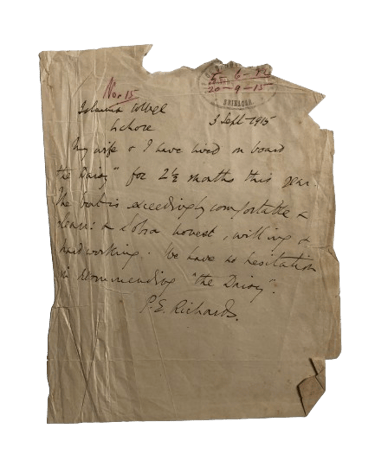 No. 15
20-9-15
SRINAGAR
Islamia College
Lahore
3 Sept 1915
My wife & I have lived on board
"the Daisy" for 2½ months this year.
The boat is exceedingly comfortable &
clean: & Sobra honest, willing &
hardworking. We have no hesitation
in recommending "the Daisy".
P. E. Richards.